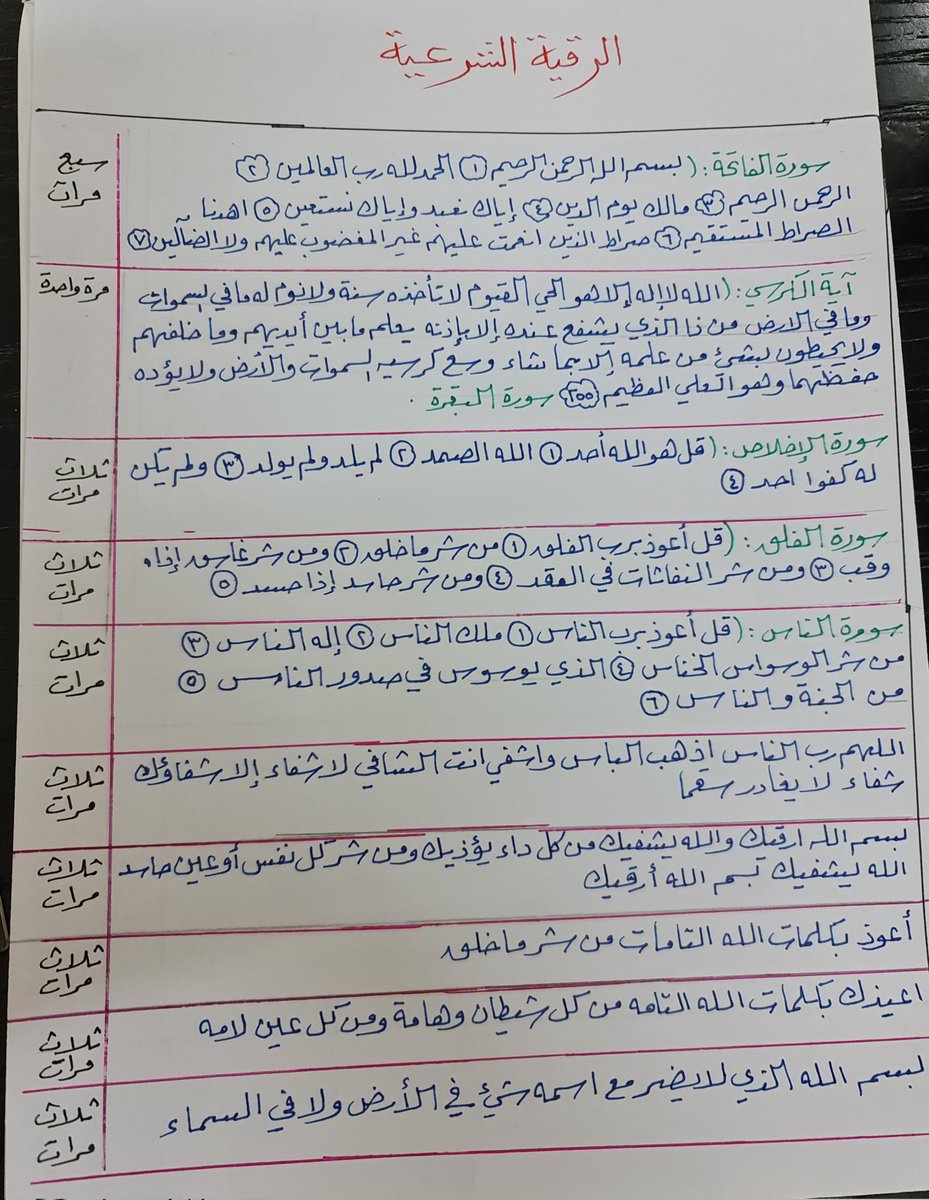 الرقية الشرعية
سورة الفاتحة: (بسم الله الرحمن الرحيم ١ الحمد لله رب العالمين ٢
الرحمن الرحيم ٣ مالك يوم الدين ٤ إياك نعبد وإياك نستعين ٥ اهدنا
الصراط المستقيم ٦ صراط الذين انعمت عليهم غير المغضوب عليهم ولا الضآلين ٧
سبع
مرات
آية الكرسي: (الله لا إله إلا هو الحي القيوم لا تأخذه سنة ولا نوم له ما في السموات
وما في الارض من ذا الذي يشفع عنده إلا بإذنه يعلم ما بين أيديهم وما خلفهم
ولا يحيطون بشئ من علمه إلا بما شاء وسع كرسيه السموات والأرض ولا يؤده
حفظهما وهو العلي العظيم ٢٥٥ سورة البقرة .
مرة واحدة
سورة الإخلاص: (قل هو الله أحد ١ الله الصمد ٢ لم يلد ولم يولد ٣ ولم يكن
له كفوا احد ٤
ثلاث
مرات
سورة الفلق: (قل أعوذ برب الفلق ١ من شر ما خلق ٢ ومن شر غاسق إذا
وقب ٣ ومن شر النفاثات في العقد ٤ ومن شر حاسد إذا حسد ٥
ثلاث
مرات
سورة الناس: (قل أعوذ برب الناس ١ ملك الناس ٢ إله الناس ٣
من شر الوسواس الخناس ٤ الذي يوسوس في صدور الناس ٥
من الجنة والناس ٦
ثلاث
مرات
اللهم رب الناس اذهب الباس واشفي انت الشافي لا شفاء إلا شفاؤك
شفاء لا يغادر سقما
ثلاث
مرات
بسم الله ارقيك والله يشفيك من كل داء يؤذيك ومن شر كل نفس أو عين حاسد
الله يشفيك بسم الله أرقيك
ثلاث
مرات
أعوذ بكلمات الله التامات من شر ما خلق
ثلاث
مرات
اعيذك بكلمات الله التامه من كل شيطان وهامة ومن كل عين لامه
ثلاث
مرات
بسم الله الذي لا يضر مع اسمه شئ في الأرض ولا في السماء
ثلاث
مرات